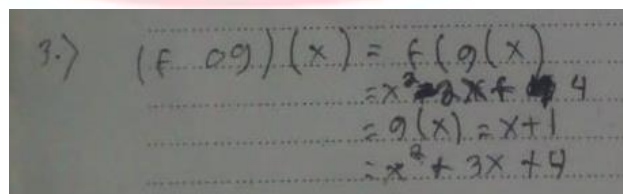 3.) (f o g)(x) = f(g(x)
= x² + 2x + 4
= g(x) = x+1
= x² + 3x + 4